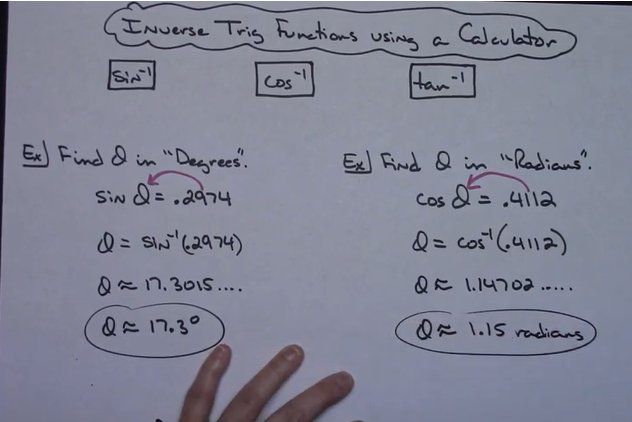 Inverse Trig Functions using a Calculator
sin⁻¹
cos⁻¹
tan⁻¹
Ex) Find θ in "Degrees".
sin θ = .2974
θ = sin⁻¹(.2974)
θ ≈ 17.3015....
θ ≈ 17.3°
Ex) Find θ in "Radians".
cos θ = .4112
θ = cos⁻¹(.4112)
θ ≈ 1.14702.....
θ ≈ 1.15 radians